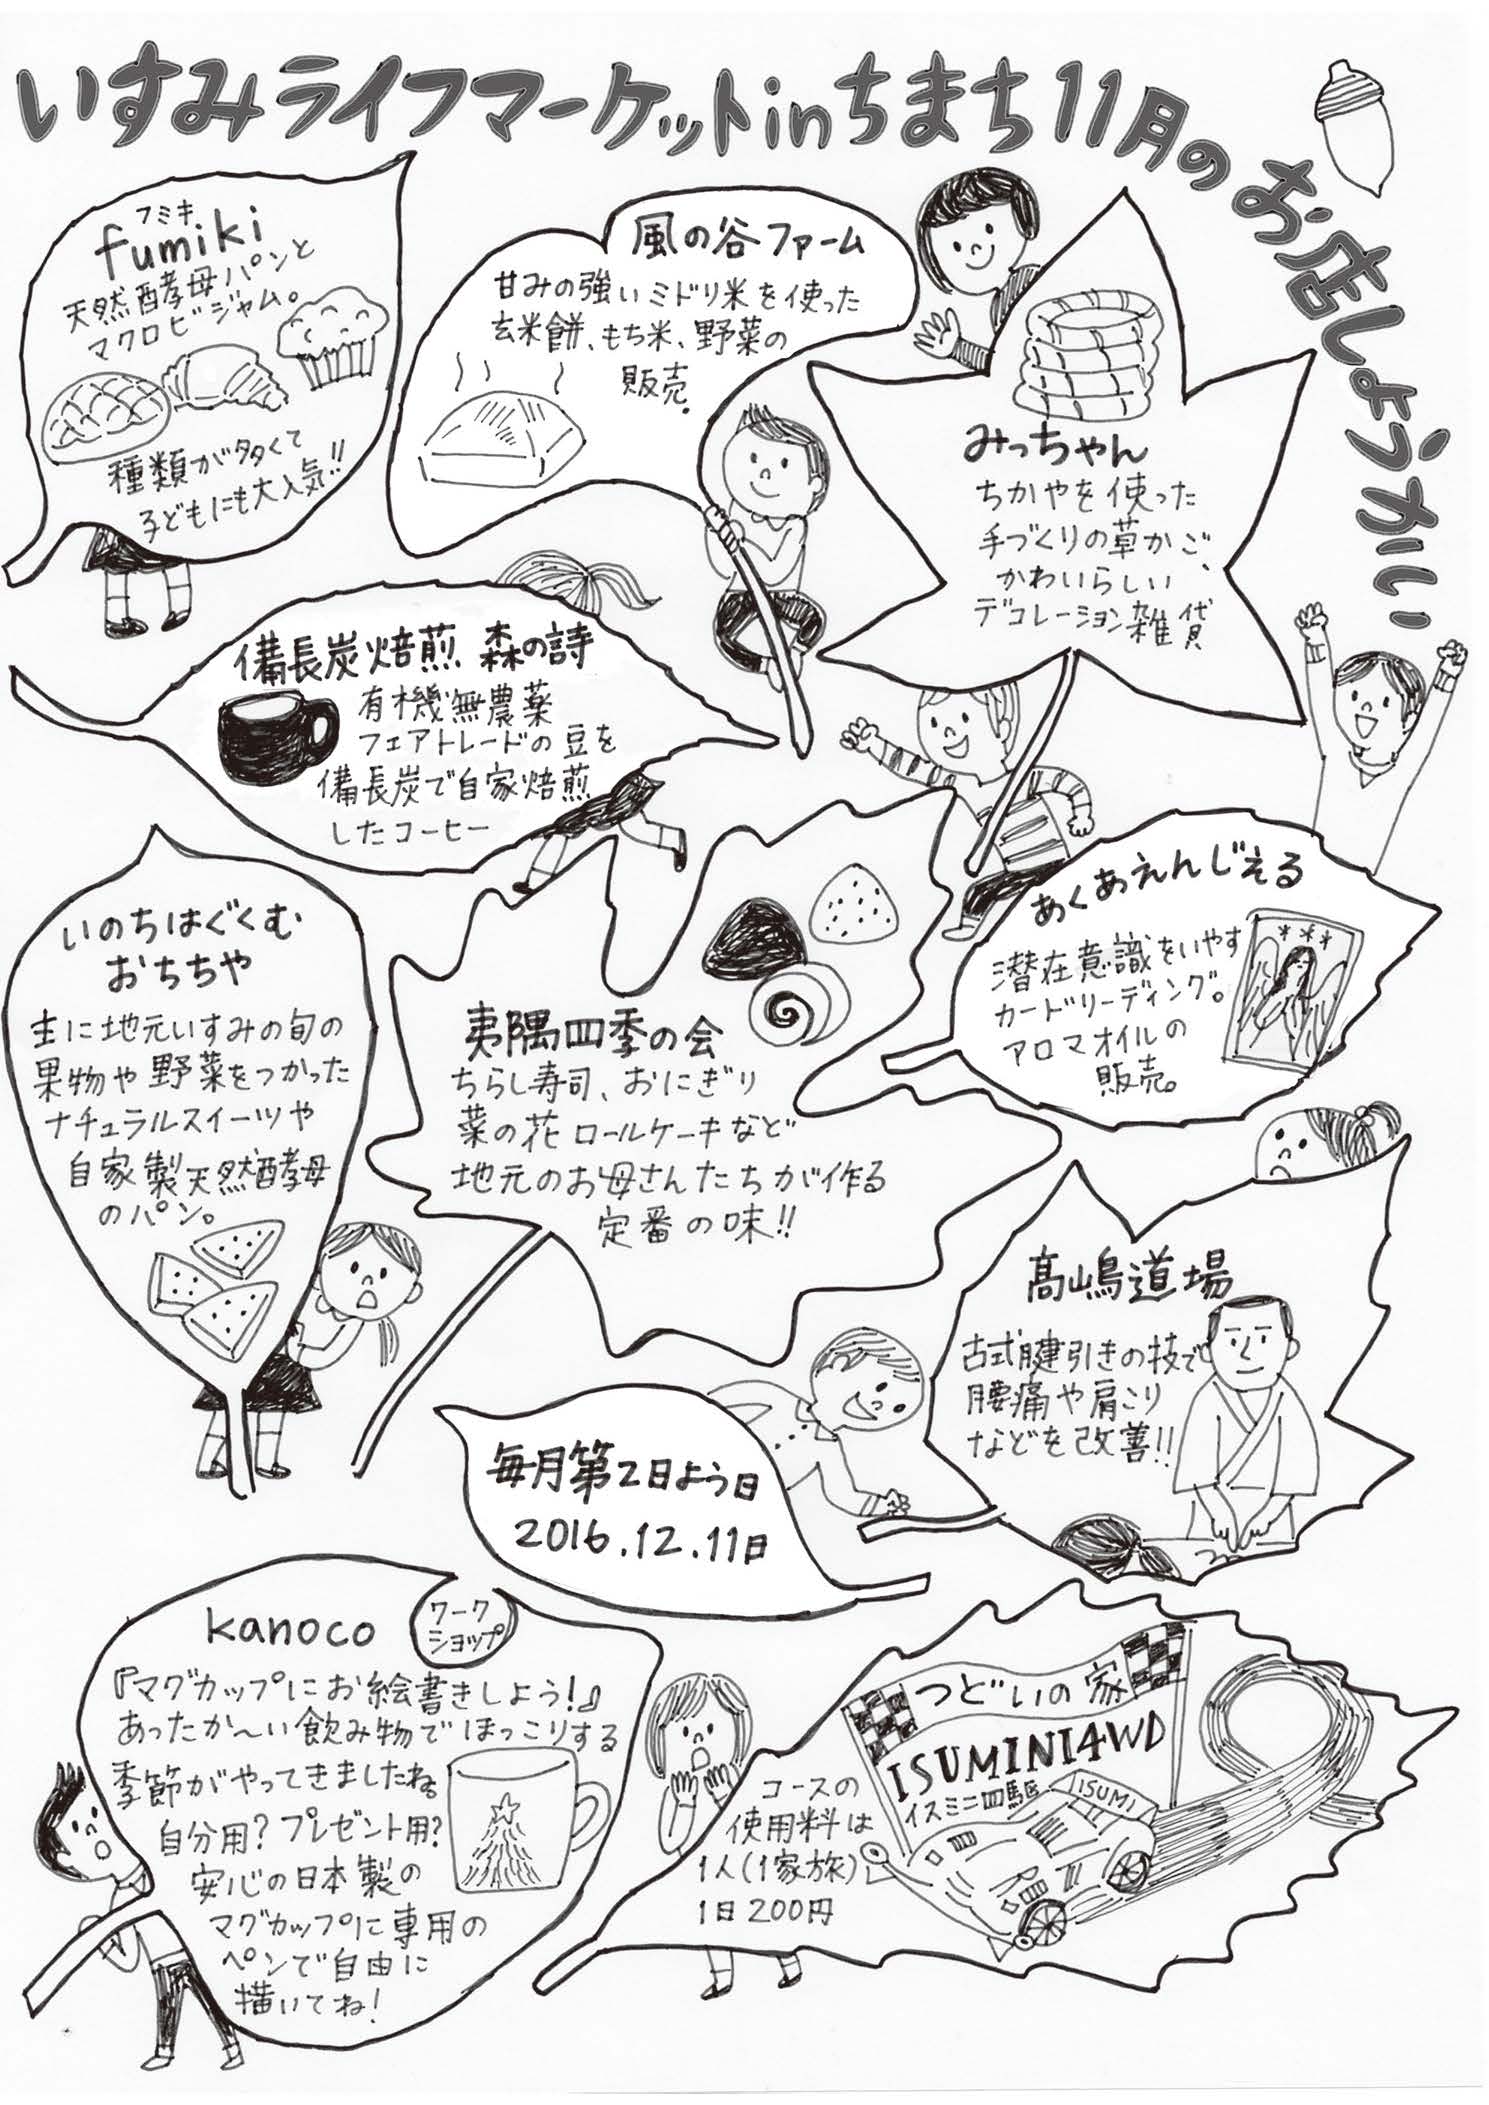 いすみライフマーケットinちまち11月のお店しょうかい
フミキ
fumiki
天然酵母パンと
マクロビジャム。
種類が多くて
子どもにも大人気!!
風の谷ファーム
甘みの強いミドリ米を使った
玄米餅、もち米、野菜の
販売。
みっちゃん
ちがやを使った
手づくりの草かご、
かわいらしい
デコレーション雑貨
備長炭焙煎 森の詩
有機無農薬
フェアトレードの豆を
備長炭で自家焙煎
したコーヒー
いのちはぐくむ
おちちや
主に地元いすみの旬の
果物や野菜をつかった
ナチュラルスイーツや
自家製天然酵母
のパン。
夷隅四季の会
ちらし寿司、おにぎり
菜の花ロールケーキなど
地元のお母さんたちが作る
定番の味!!
あくあえんじぇる
潜在意識をいやす
カードリーディング。
アロマオイルの
販売。
髙嶋道場
古式腱引きの技で
腰痛や肩こり
などを改善!!
毎月第2日よう日
2016.12.11日
kanoco
ワーク
ショップ
『マグカップにお絵書きしよう!』
あったか〜い飲み物でほっこりする
季節がやってきましたね。
自分用?プレゼント用?
安心の日本製の
マグカップに専用の
ペンで自由に
描いてね!
つどいの家
ISUMINI4WD
イスミニ四駆
ISUMI
コースの
使用料は
1人(1家族)
1日200円